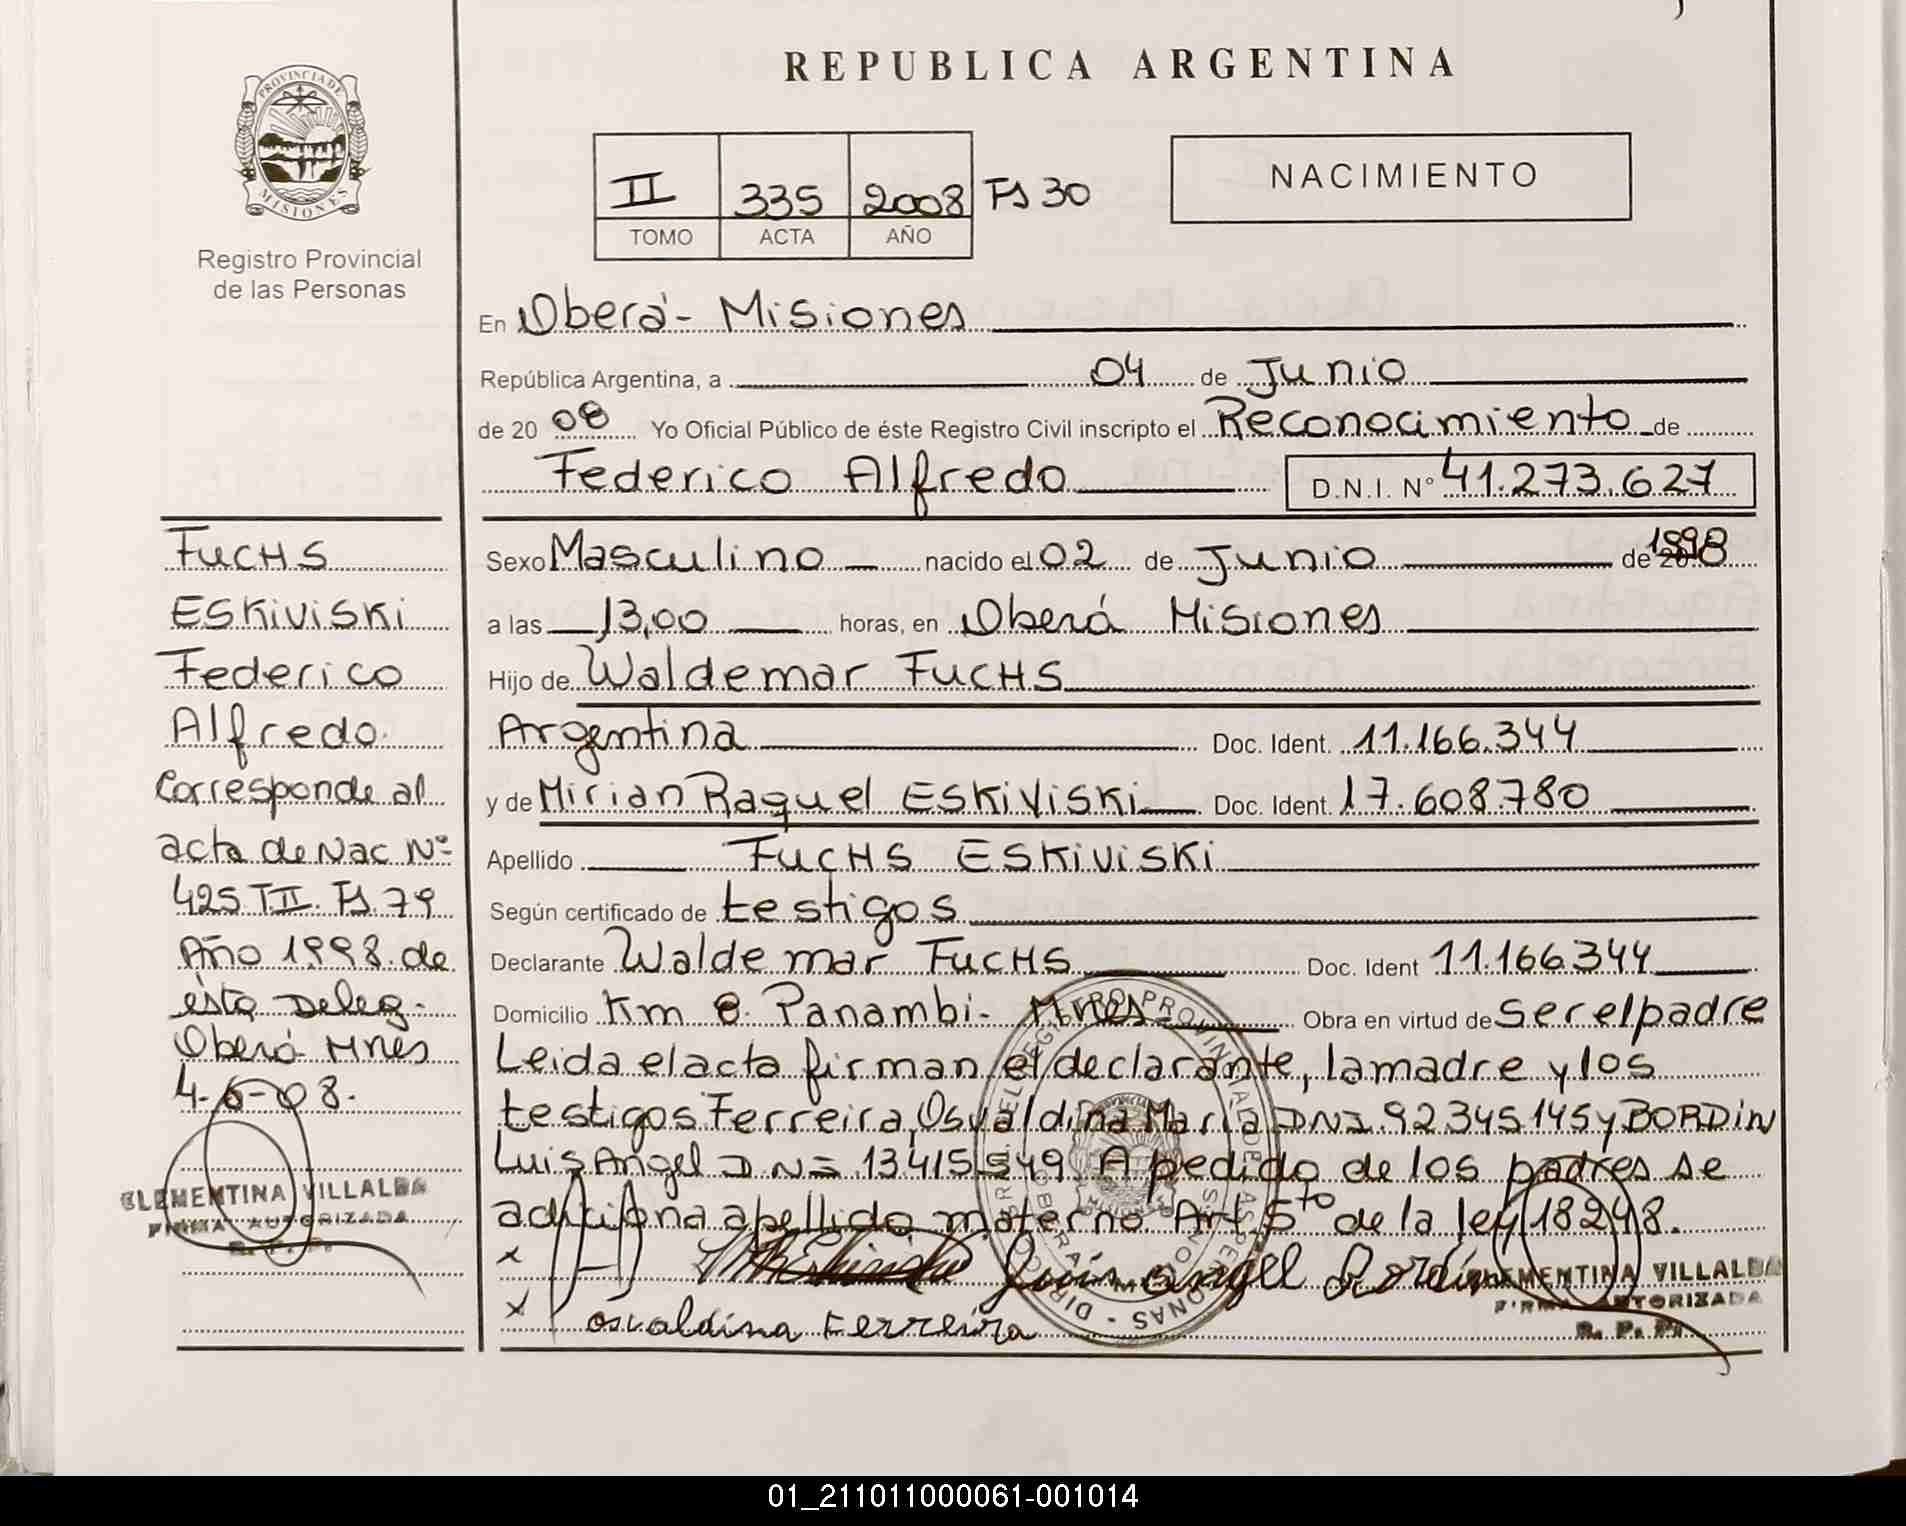 REPUBLICA ARGENTINA
PROVINCIA DE
MISIONES
Registro Provincial
de las Personas
II 335 2008 Fs 30
TOMO ACTA AÑO
NACIMIENTO
En Oberá - Misiones
República Argentina, a 04 de Junio
de 20 08 Yo Oficial Público de éste Registro Civil inscripto el Reconocimiento de
Federico Alfredo D.N.I. N° 41.273.627
Sexo Masculino nacido el 02 de Junio de 1998
a las 13,00 horas, en Oberá Misiones
Hijo de Waldemar FucHS
Argentina Doc. Ident. 11.166.344
y de Mirian Raquel ESKiViSKi Doc. Ident. 17.608.780
Apellido FucHS ESKiViSKi
Según certificado de testigos
Declarante Waldemar FucHS Doc. Ident 11.166.344
Domicilio Km 8. Panambi - Mnes Obra en virtud de ser el padre
Leida el acta firman el declarante, la madre y los
testigos Ferreira, Osvaldina Maria DNI. 92345145 y BORDiN
Luis Angel DNI 13.415.549 A pedido de los padres se
adiciona apellido materno Art. 5to de la ley 18248.
x
Luis Angel Bordin
x
osvaldina Ferreira
CLEMENTINA VILLALBA
FIRMA AUTORIZADA
R. P. P.
FucHS
ESKiViSKi
Federico
Alfredo.
Corresponde al
acta de Nac Nº
425 TII. Fs. 79
Año 1998. de
ésta Deleg.
Oberá Mnes
4-6-08.
CLEMENTINA VILLALBA
FIRMA AUTORIZADA
R. P. P.
01_211011000061-001014